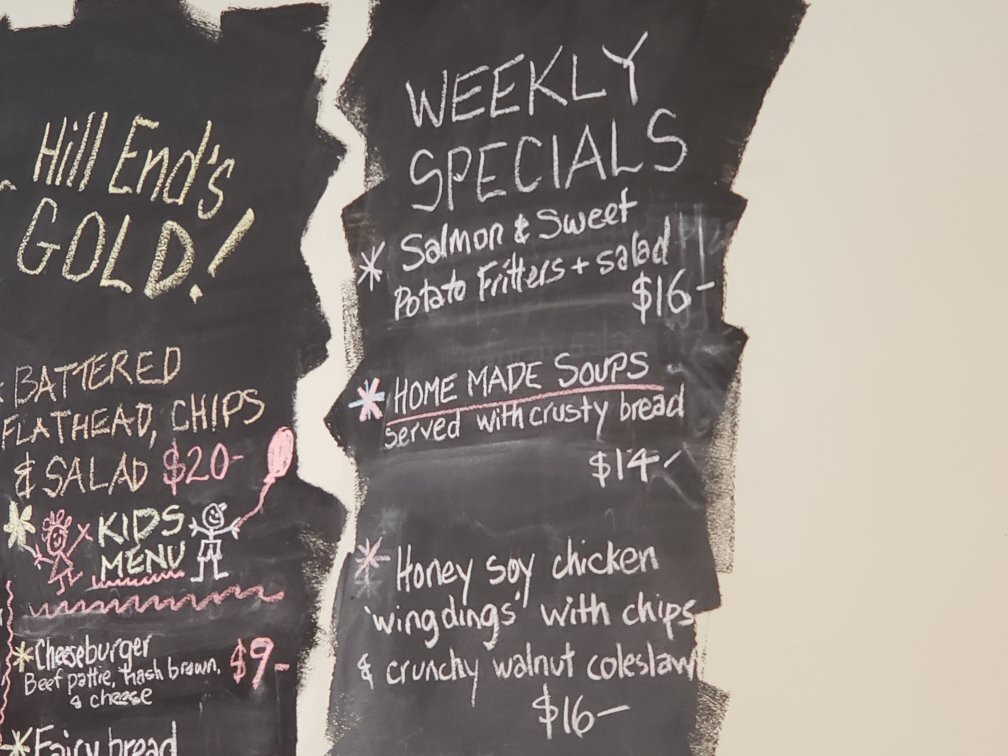 Hill End's
GOLD!
BATTERED
FLATHEAD, CHIPS
& SALAD $20-
KIDS
MENU
Cheeseburger
$9-
Beef pattie, hash brown,
& cheese
Fairy bread
WEEKLY
SPECIALS
* Salmon & Sweet
Potato Fritters + salad
$16-
* HOME MADE SOUPS
served with crusty bread
$14-
* Honey soy chicken
'wingdings' with chips
& crunchy walnut coleslaw
$16-